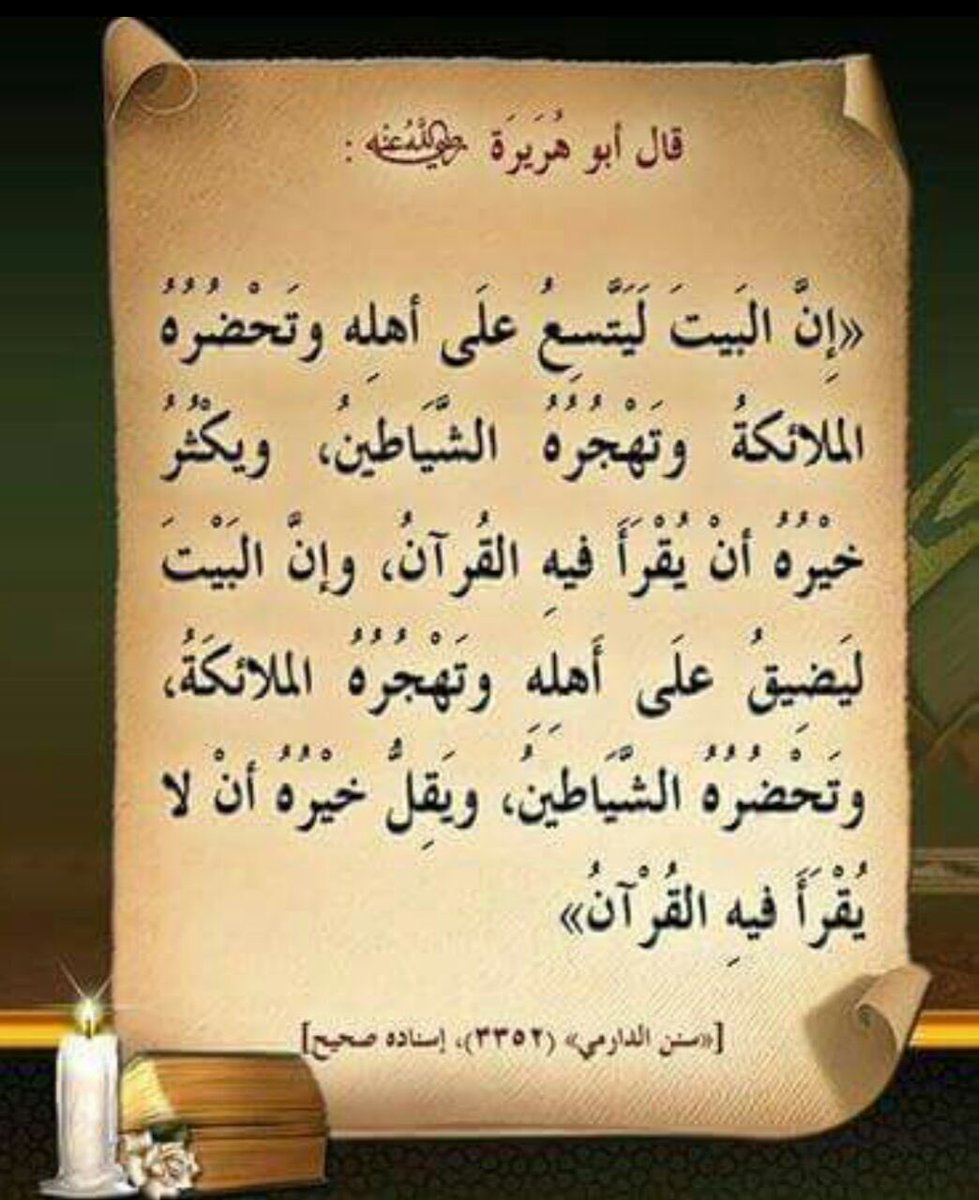 قال أبو هُرَيرَة رضي الله عنه :
«إِنَّ البَيتَ لَيَتَّسِعُ علَى أهلِه وتَحْضُرُهُ
الملائكةُ وتَهْجُرُهُ الشَّياطينُ، ويكْثُرُ
خيْرُهُ أنْ يُقْرَأَ فيهِ القُرآنُ، وإنَّ البَيْتَ
ليَضِيقُ علَى أَهلِهِ وتَهْجُرُهُ الملائكَةُ،
وتَحْضُرُهُ الشَّيَاطينُ، ويَقِلُّ خيْرُهُ أنْ لا
يُقْرَأَ فيهِ القُرْآنُ»
[«سنن الدارمي» (٣٣٥٢)، إسناده صحيح]